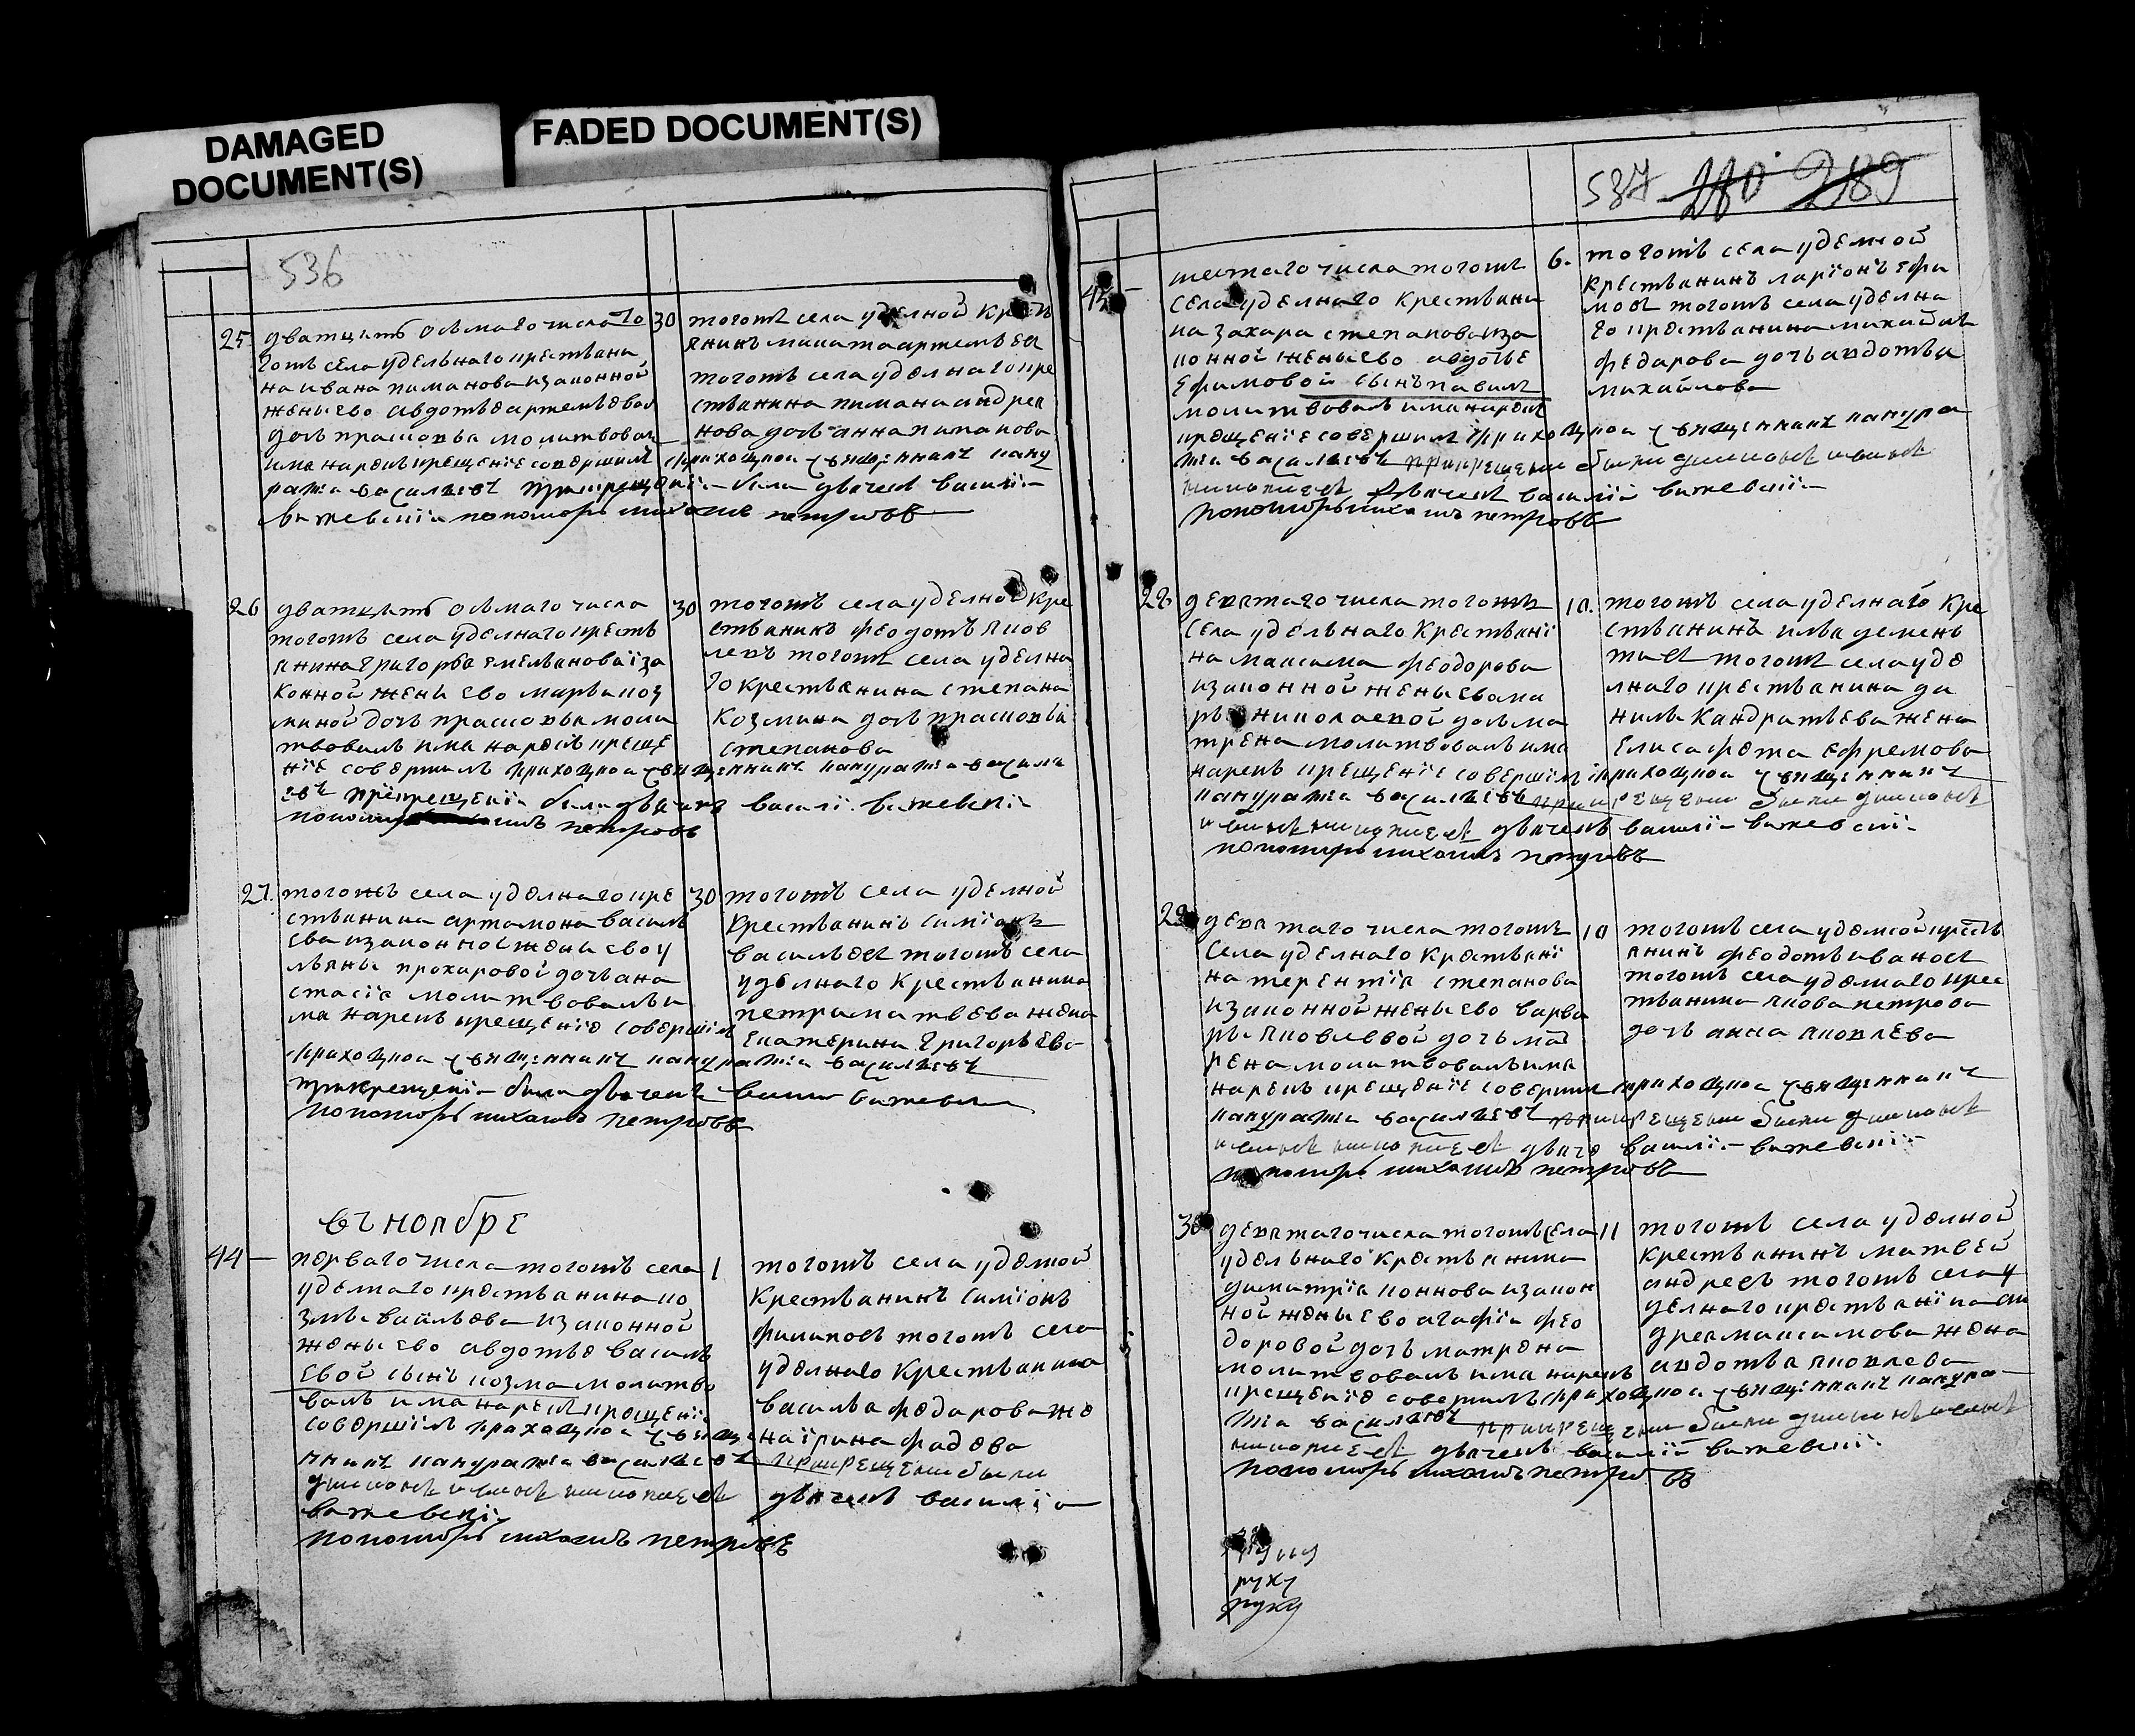 DAMAGED
DOCUMENT(S)
FADED DOCUMENT(S)
536
25
дватцать осмаго числа то
гожъ села удельнаго крестьяни
на ивана пиманова изаконной
жены ево авдотьи артемьевой
дочь прасковья молитвовалъ
имя нарекъ крещенїе совершилъ приходцкой священникъ панкратїи васильевъ
при крещенїи были дьячекъ василїи
важевскїи пономарь михаилъ петровъ
30
тогожъ села уделной кресть
янинъ никита артемьевъ
тогожъ села уделнаго кре
стьянина пимана андрея
нова дочь анна пиманова
26
дватцать осмаго числа
тогожъ села уделнаго кресть
янина григорья емельянова їза
конной жены ево марьи коз
миной дочь прасковья моли
твовалъ имя нарекъ креще
нїе совершилъ приходцкой священникъ панкратїи василь
евъ при крещенїи были дьячекъ василїи важевскїи
пономарь петровъ
30
тогожъ села уделной кре
стьянинъ феодотъ яков
левъ тогожъ села уделна
го крестьянина степана
козмина дочь прасковья
степанова
27.
тогожъ села уделнаго кре
стьянина артамона василь
ева изаконной жены ево у
льяны прохаровой дочь ана
стасїя молитвовалъ и
мя нарекъ крещенїе совершилъ
приходцкой священникъ панкратїи васильевъ
при крещенїи были дьячекъ василїи важевскїи
пономарь михаилъ петровъ
30
тогожъ села уделной
крестьянинъ симїонъ
васильевъ тогожъ села
уделнаго крестьянина
петра матвева жена
екатерина григорьева
въ ноябре
44
перваго числа тогожъ села
уделнаго крестьянина ко
змы васильева изаконной
жены ево авдотьи василь
евой сынъ козма молитво
валъ имя нарекъ крещенїе
совершилъ приходцкой священ
никъ панкратїи васильевъ при крещенїи были
дьячекъ василїи
важевскїи
пономарь михаилъ петровъ
1
тогожъ села уделной
крестьянинъ симїонъ
филиповъ тогожъ села
уделнаго крестьянина
василья федарова же
на їрина фадева
537 280 289
шестаго числа тогожъ
села уделнаго крестьяни
на захара степанова иза
конной жены ево авдотье
ефимовой сынъ павилъ
молитвовалъ имя нарекъ
крещенїе совершилъ приходцкой священникъ панкра
тїи васильевъ при крещенїи были
дьячекъ василїи важевскїи
пономарь михаилъ петровъ
6.
тогожъ села уделной
крестьянинъ ларїонъ ефи
мовъ тогожъ села уделна
го крестьянина михайлы
федарова дочь авдотья
михайлова
28
девятаго числа тогожъ
села удельнаго крестьянї
на максима феодорова
изаконной жены ево ма
рьи николаевой дочь ма
трена молитвовалъ имя
нарекъ крещенїе совершилъ приходцкой священникъ
панкратїи васильевъ при крещенїи были
дьячекъ василїи важевскїи
пономарь михаилъ петровъ
10.
тогожъ села уделнаго кре
стьянинъ илья демень
тьевъ тогожъ села уде
лнаго крестьянина да
нилы кандратьева жена
елисафета ефремова
29
девятаго числа тогожъ
села уделнаго крестьянї
на терентїя степанова
изаконной жены ево варва
ры яковлевой дочь мат
рена молитвовалъ имя
нарекъ крещенїе совершилъ приходцкой священникъ
панкратїи васильевъ при крещенїи были
дьячекъ василїи важевскїи
пономарь михаилъ петровъ
10
тогожъ села уделной кресть
янинъ феодотъ ивановъ
тогожъ села уделнаго крес
тьянина якова петрова
дочь анна яковлева
30
девятаго числа тогожъ села
удельнаго крестьянина
димитрїя коннова изакон
ной жены ево агафїи фео
доровой дочь матрена
молитвовалъ имя нарекъ
крещенїе совершилъ приходцкой священникъ панкра
тїи васильевъ при крещенїи были
дьячекъ василїи важевскїи
пономарь михаилъ петровъ
11
тогожъ села уделной
крестьянинъ матвей
андреевъ тогожъ села у
делнаго крестьянїна ан
дрея максимова жена
авдотья яковлева
руку
руку